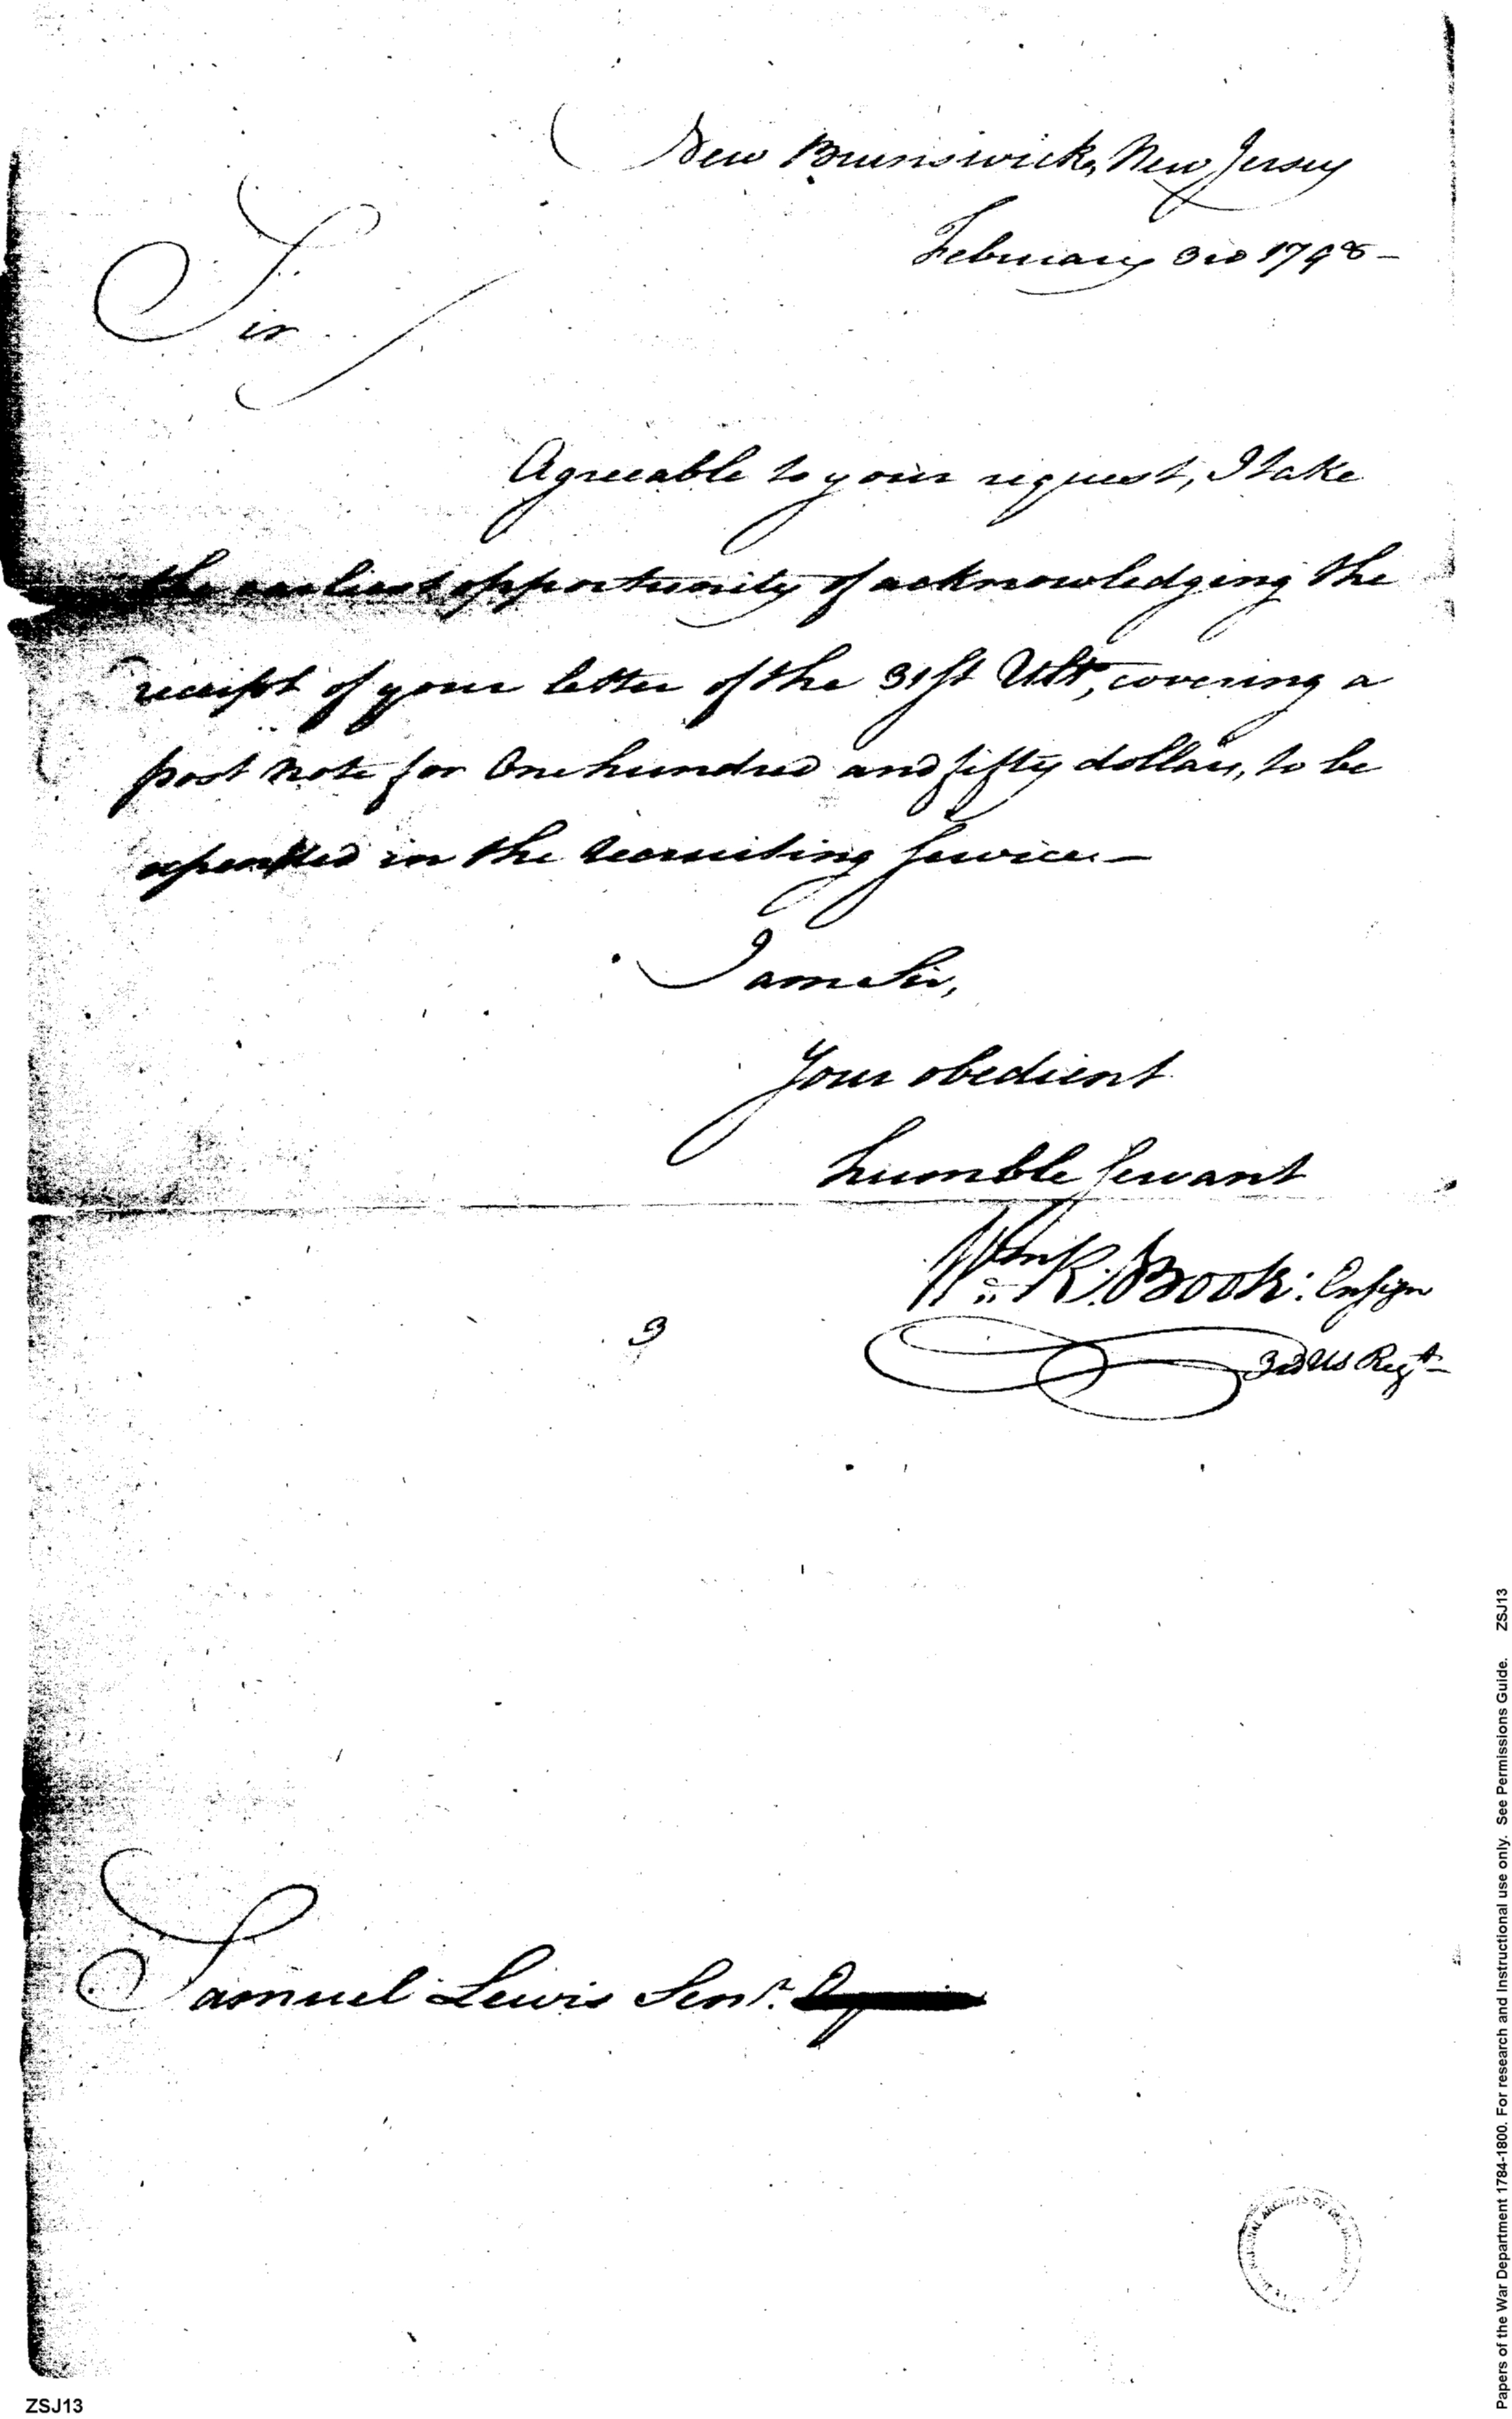 New Brunswick, New Jersey
February 3rd 1798 –
Sir
Agreeable to your request, I take
the earliest opportunity of acknowledging the
receipt of your letter of the 31st Ult, covering a
post note for One hundred and fifty dollars, to be
expended in the recruiting service. –
I am Sir,
Your obedient
humble servant
Wm K. Book: Ensign
3rd US Regt
3
Samuel Lewis Senr.
NATIONAL ARCHIVES OF THE
ZSJ13
Papers of the War Department 1784-1800. For research and Instructional use only. See Permissions Guide. ZSJ13